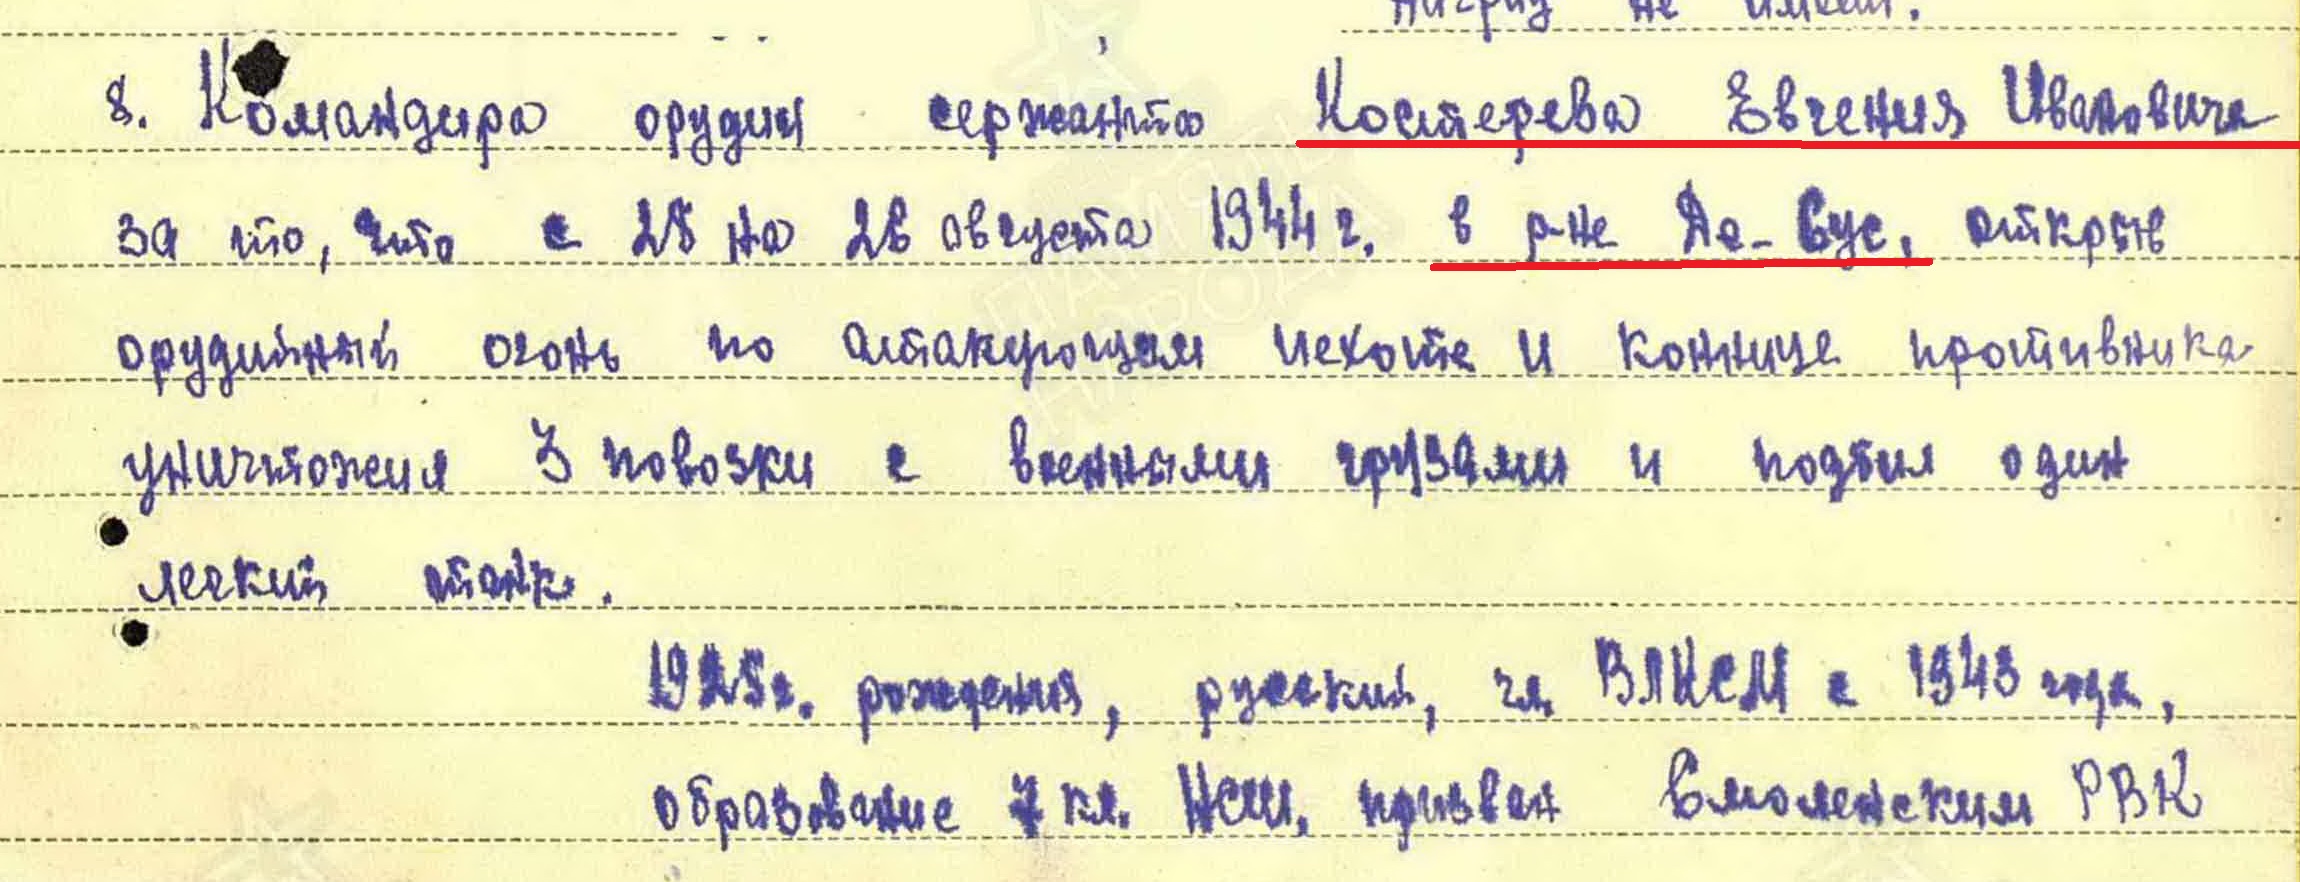 наград не имеет.
8. Командира орудия сержанта Костерева Евгения Ивановича
за то, что с 25 на 26 августа 1944 г. в р-не Де-Вус, открыв
орудийный огонь по атакующем пехоте и коннице противника
уничтожил 3 повозки с военными грузами и подбил один
легкий танк.
1925 г. рождения, русский, чл. ВЛКСМ с 1943 года,
образование 7 кл. НСШ, призван Смоленским РВК
ПАМЯТЬ
НАРОДА